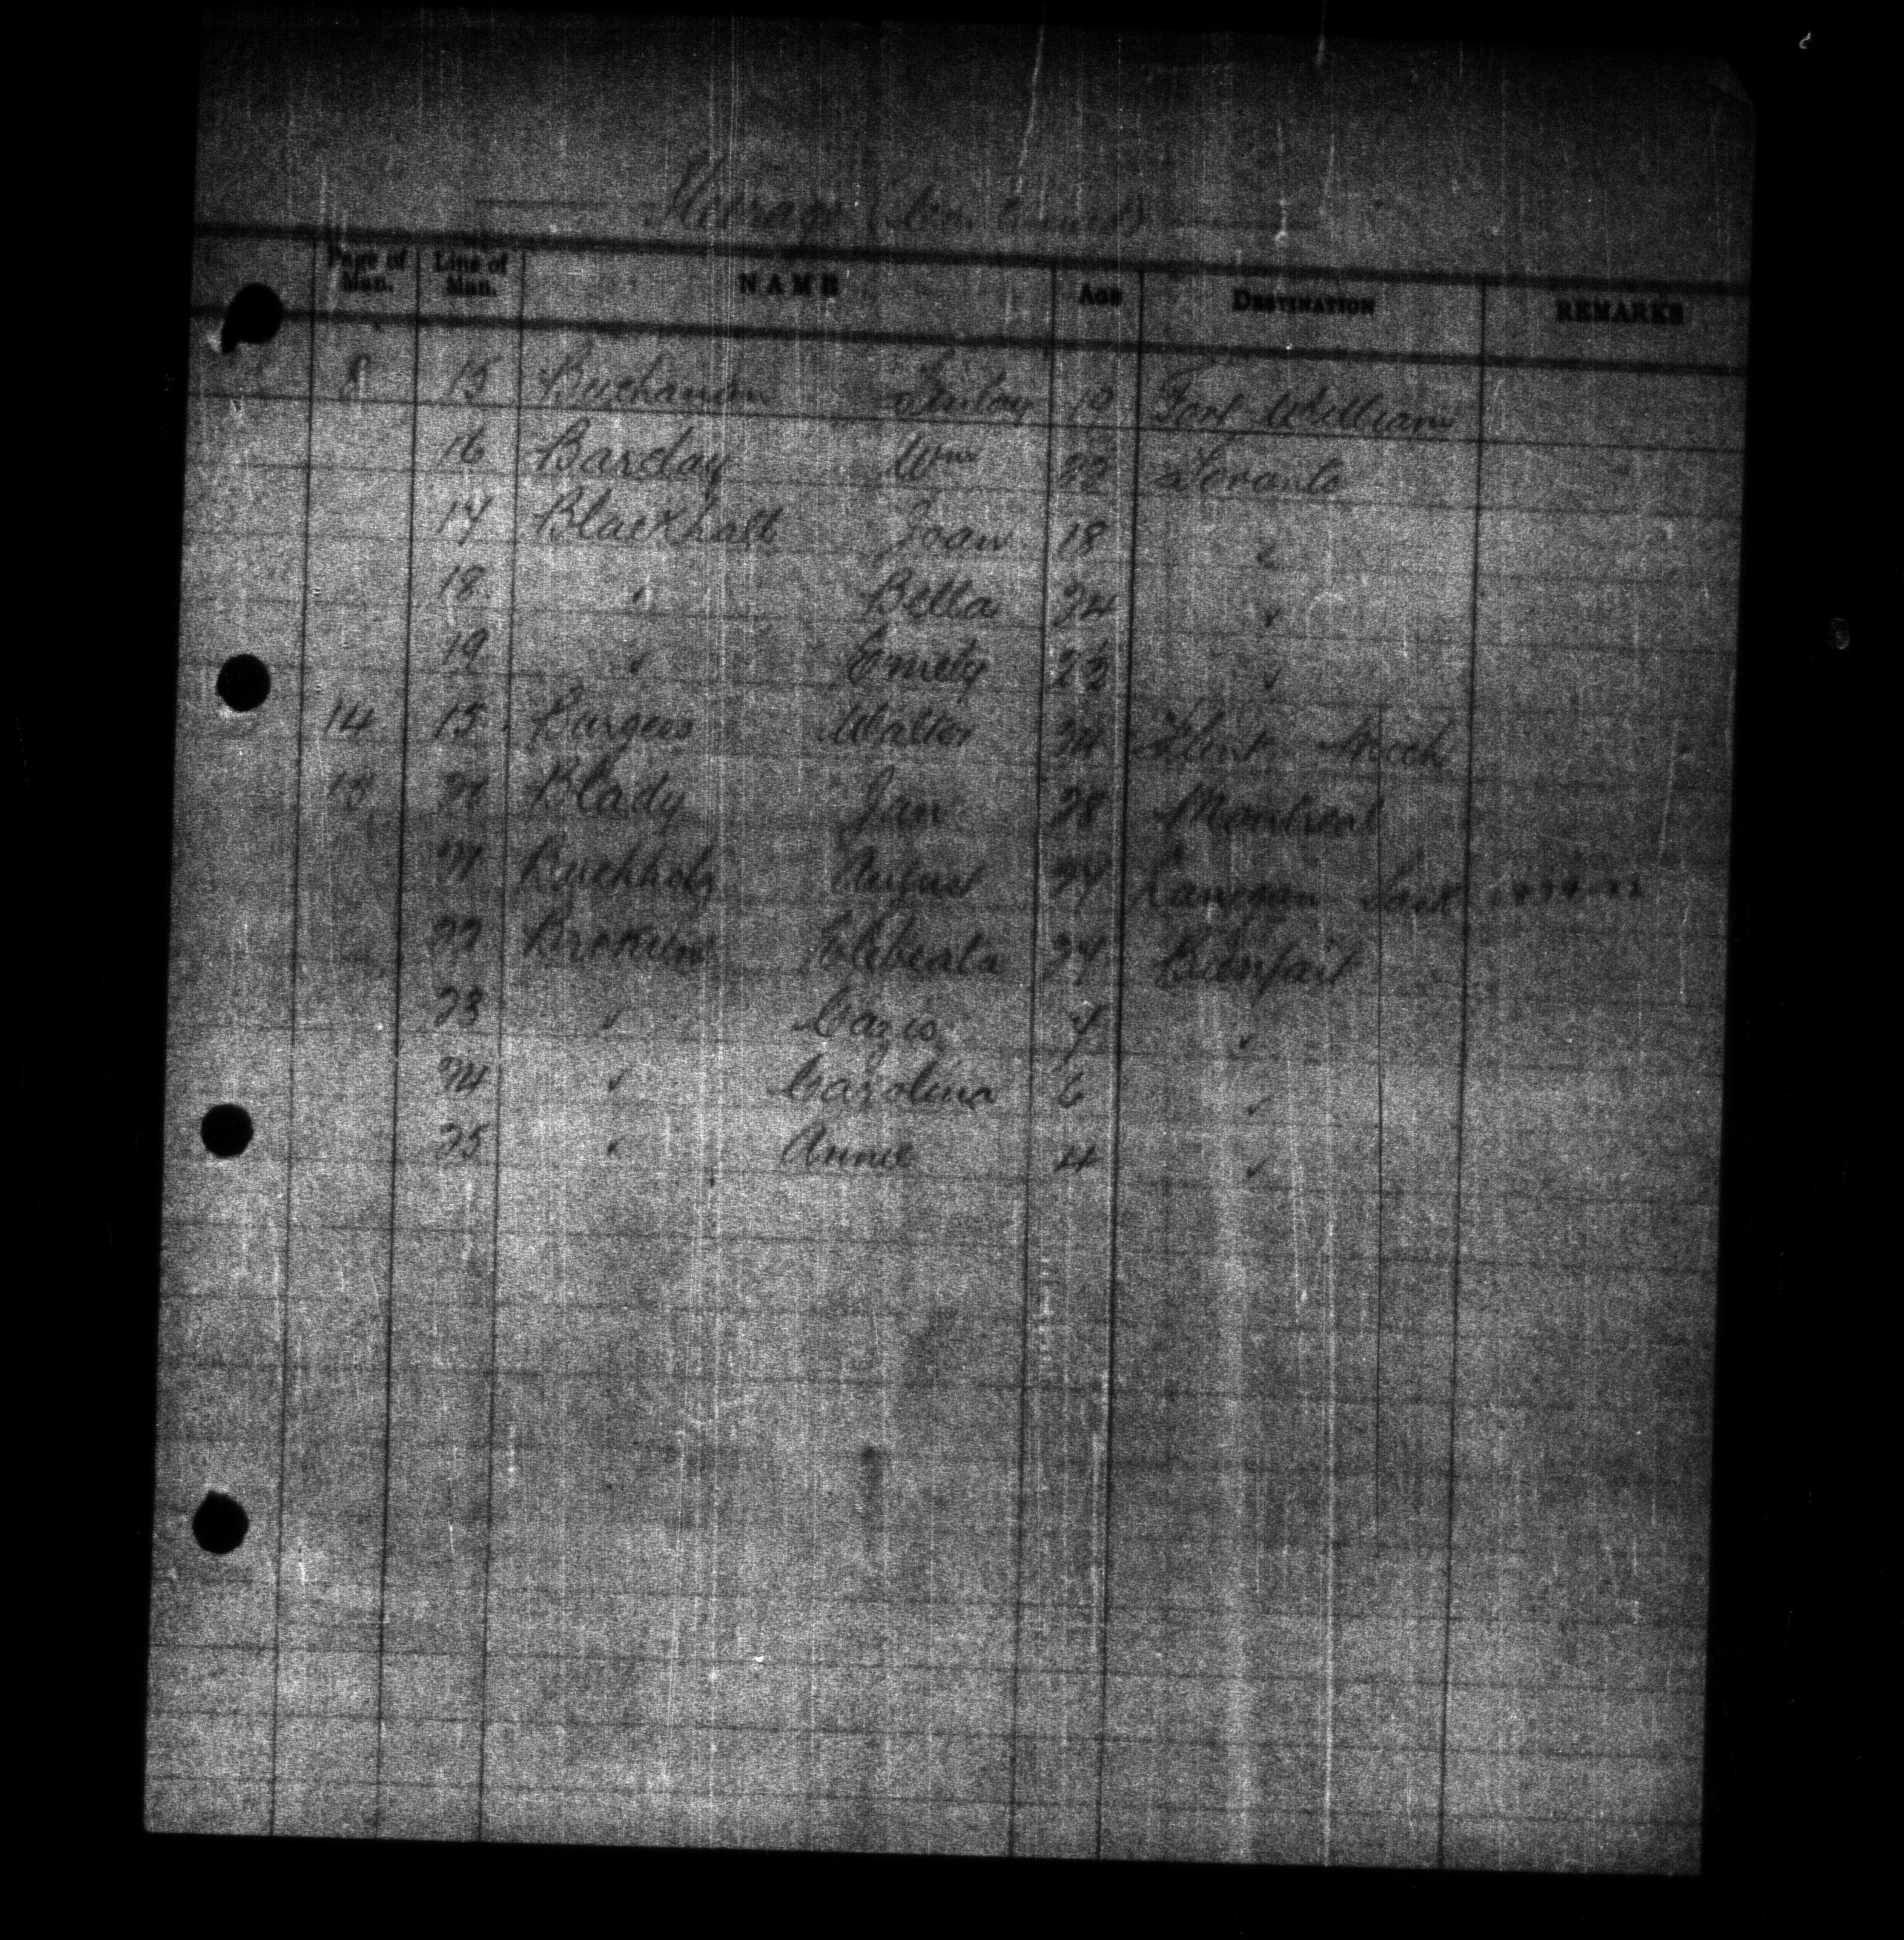 Steerage (Continued)
Page of Man. Line of Man. NAME AGE DESTINATION REMARKS
8 15 Buchanan Finlay 19 Fort William
16 Barclay Wm 22 Toronto
17 Blackhall Jean 18 "
18 " Bella 24 "
19 " Emily 23 "
14 15 Burgess Walter 34 Flint Mich
15 Blady Jan 28 Montreal
21 Buchholz August 27 Lanigan Sask
22 27 Bienfait
23 " 7 "
24 " Carolina 6 "
25 " Annie 4 "